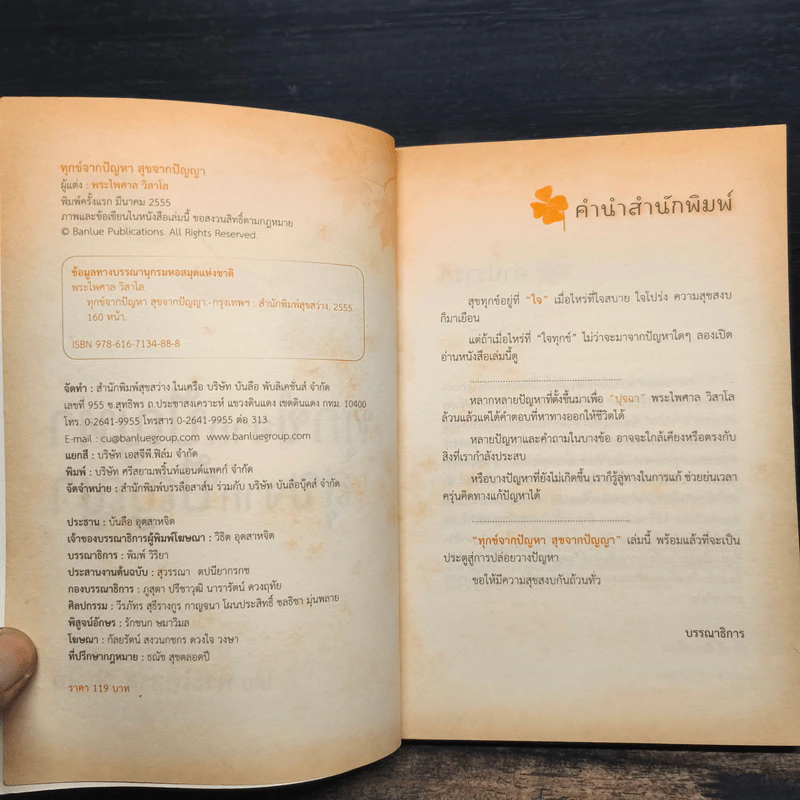 ทุกข์จากปัญหา สุขจากปัญญา
ผู้แต่ง : พระไพศาล วิสาโล
พิมพ์ครั้งแรก มีนาคม 2555
ภาพและข้อเขียนในหนังสือเล่มนี้ ขอสงวนสิทธิ์ตามกฎหมาย
© Banlue Publications. All Rights Reserved.
ข้อมูลทางบรรณานุกรมหอสมุดแห่งชาติ
พระไพศาล วิสาโล.
ทุกข์จากปัญหา สุขจากปัญญา.-กรุงเทพฯ : สำนักพิมพ์สุขสว่าง, 2555
160 หน้า.
ISBN 978-616-7134-88-8
จัดทำ : สำนักพิมพ์สุขสว่าง ในเครือ บริษัท บันลือ พับลิเคชั่นส์ จำกัด
เลขที่ 955 ซ.สุทธิพร ถ.ประชาสงเคราะห์ แขวงดินแดง เขตดินแดง กทม. 10400
โทร. 0-2641-9955 โทรสาร 0-2641-9955 ต่อ 313
E-mail : cu@banluegroup.com www.banluegroup.com
แยกสี : บริษัท เอสจีพี.ฟิล์ม จำกัด
พิมพ์ : บริษัท ศรีสยามพริ้นท์แอนด์แพคก์ จำกัด
จัดจำหน่าย : สำนักพิมพ์บรรลือสาส์น ร่วมกับ บริษัท บันลือบุ๊คส์ จำกัด
ประธาน : บันลือ อุตสาหจิต
เจ้าของบรรณาธิการผู้พิมพ์โฆษณา : วิธิต อุตสาหจิต
บรรณาธิการ : พิมพ์ วิริยา
ประสานงานต้นฉบับ : สุวรรณา ตปนียากรกช
กองบรรณาธิการ : ภูสุดา ปรีชาวุฒิ นารารัตน์ ดวงฤทัย
ศิลปกรรม : วีรภัทร สุธีรางกูร กาญจนา โผนประสิทธิ์ ชลธิชา มุ่นพลาย
พิสูจน์อักษร : รักชนก ษมาวิมล
โฆษณา : กัลยรัตน์ สงวนกชกร ดวงใจ วงษา
ที่ปรึกษากฎหมาย : ธณัช สุขตลอดปี
ราคา 119 บาท
คำนำสำนักพิมพ์
สุขทุกข์อยู่ที่ "ใจ" เมื่อไหร่ที่ใจสบาย ใจโปร่ง ความสุขสงบ
ก็มาเยือน
แต่ถ้าเมื่อไหร่ที่ "ใจทุกข์" ไม่ว่าจะมาจากปัญหาใดๆ ลองเปิด
อ่านหนังสือเล่มนี้ดู
............................................................
หลากหลายปัญหาที่ตั้งขึ้นมาเพื่อ "ปุจฉา" พระไพศาล วิสาโล
ล้วนแล้วแต่ได้คำตอบที่หาทางออกให้ชีวิตได้
หลายปัญหาและคำถามในบางข้อ อาจจะใกล้เคียงหรือตรงกับ
สิ่งที่เรากำลังประสบ
หรือบางปัญหาที่ยังไม่เกิดขึ้น เราก็รู้ลู่ทางในการแก้ ช่วยย่นเวลา
ครุ่นคิดทางแก้ปัญหาได้
............................................................
"ทุกข์จากปัญหา สุขจากปัญญา" เล่มนี้ พร้อมแล้วที่จะเป็น
ประตูสู่การปล่อยวางปัญหา
ขอให้มีความสุขสงบกันถ้วนทั่ว
บรรณาธิการ